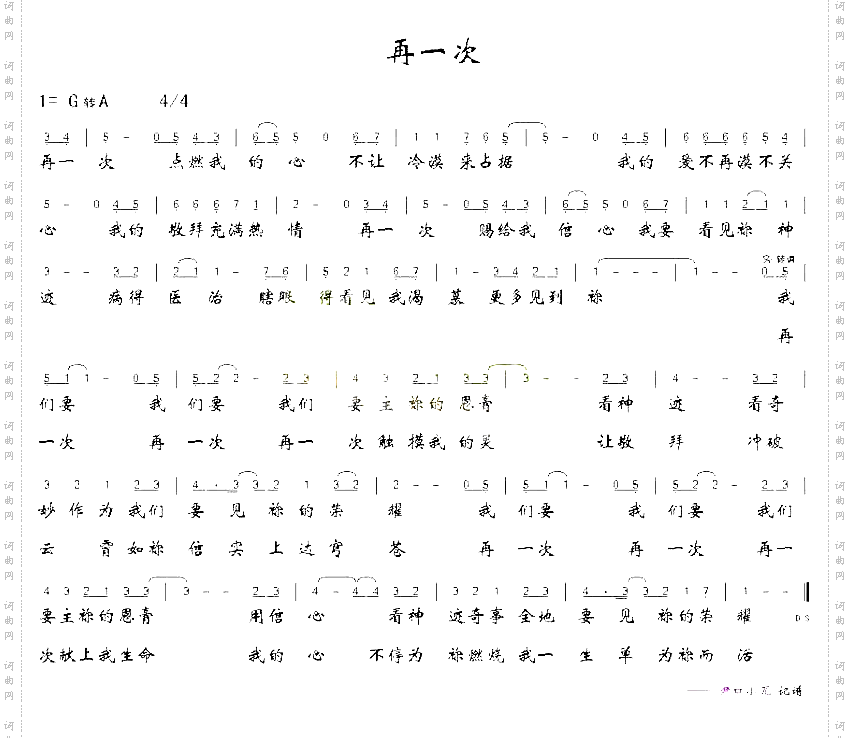 再一次
1= G 转 A 4/4
3 4 | 5 - 0 5 4 3 | 6 5 5 0 6 7 | 1 1 7 6 5 | 5 - 0 4 5 | 6 6 6 6 5 4 |
再一 次 点燃我 的 心 不让 冷漠 来占据 我的 爱不再漠不关
5 - 0 4 5 | 6 6 6 7 1 | 2 - 0 3 4 | 5 - 0 5 4 3 | 6 5 5 0 6 7 | 1 1 2 1 1 |
心 我的 敬拜充满热 情 再一 次 赐给我 信 心 我要 看见祢 神
3 - - 3 2 | 2 1 1 - 7 6 | 5 2 1 6 7 | 1 - 3 4 2 1 | 1 - - - | 1 - - 0 5 |
迹 病得 医 治 瞎眼 得看见 我渴 慕 更多见到 祢 我
再
5 1 1 - 0 5 | 5 2 2 - 2 3 | 4 3 2 1 3 3 | 3 - - 2 3 | 4 - - 3 2 |
们要 我 们要 我们 要 主祢的 恩膏 看神 迹 看奇
一次 再 一次 再一 次触摸我 的灵 让敬 拜 冲破
3 2 1 2 3 | 4 · 3 3 2 1 3 2 | 2 - - 0 5 | 5 1 1 - 0 5 | 5 2 2 - 2 3 |
妙 作 为 我们 要 见 祢 的 荣 耀 我 们要 我 们要 我们
云 霄 如祢 信 实 上 达 穹 苍 再 一次 再 一次 再一
4 3 2 1 3 3 | 3 - - 2 3 | 4 - 4 4 3 2 | 3 2 1 2 3 | 4 · 3 3 2 1 7 | 1 -
要主祢的恩膏 用信 心 看神 迹奇事 全地 要 见 祢的荣 耀 D S
次献上我生命 我的 心 不停为 祢燃烧 我一 生 单 为祢而 活
记谱
词曲网
词曲网
词曲网
词曲网
词曲网
词曲网
词曲网
词曲网
词曲网
词曲网
词曲网
词曲网